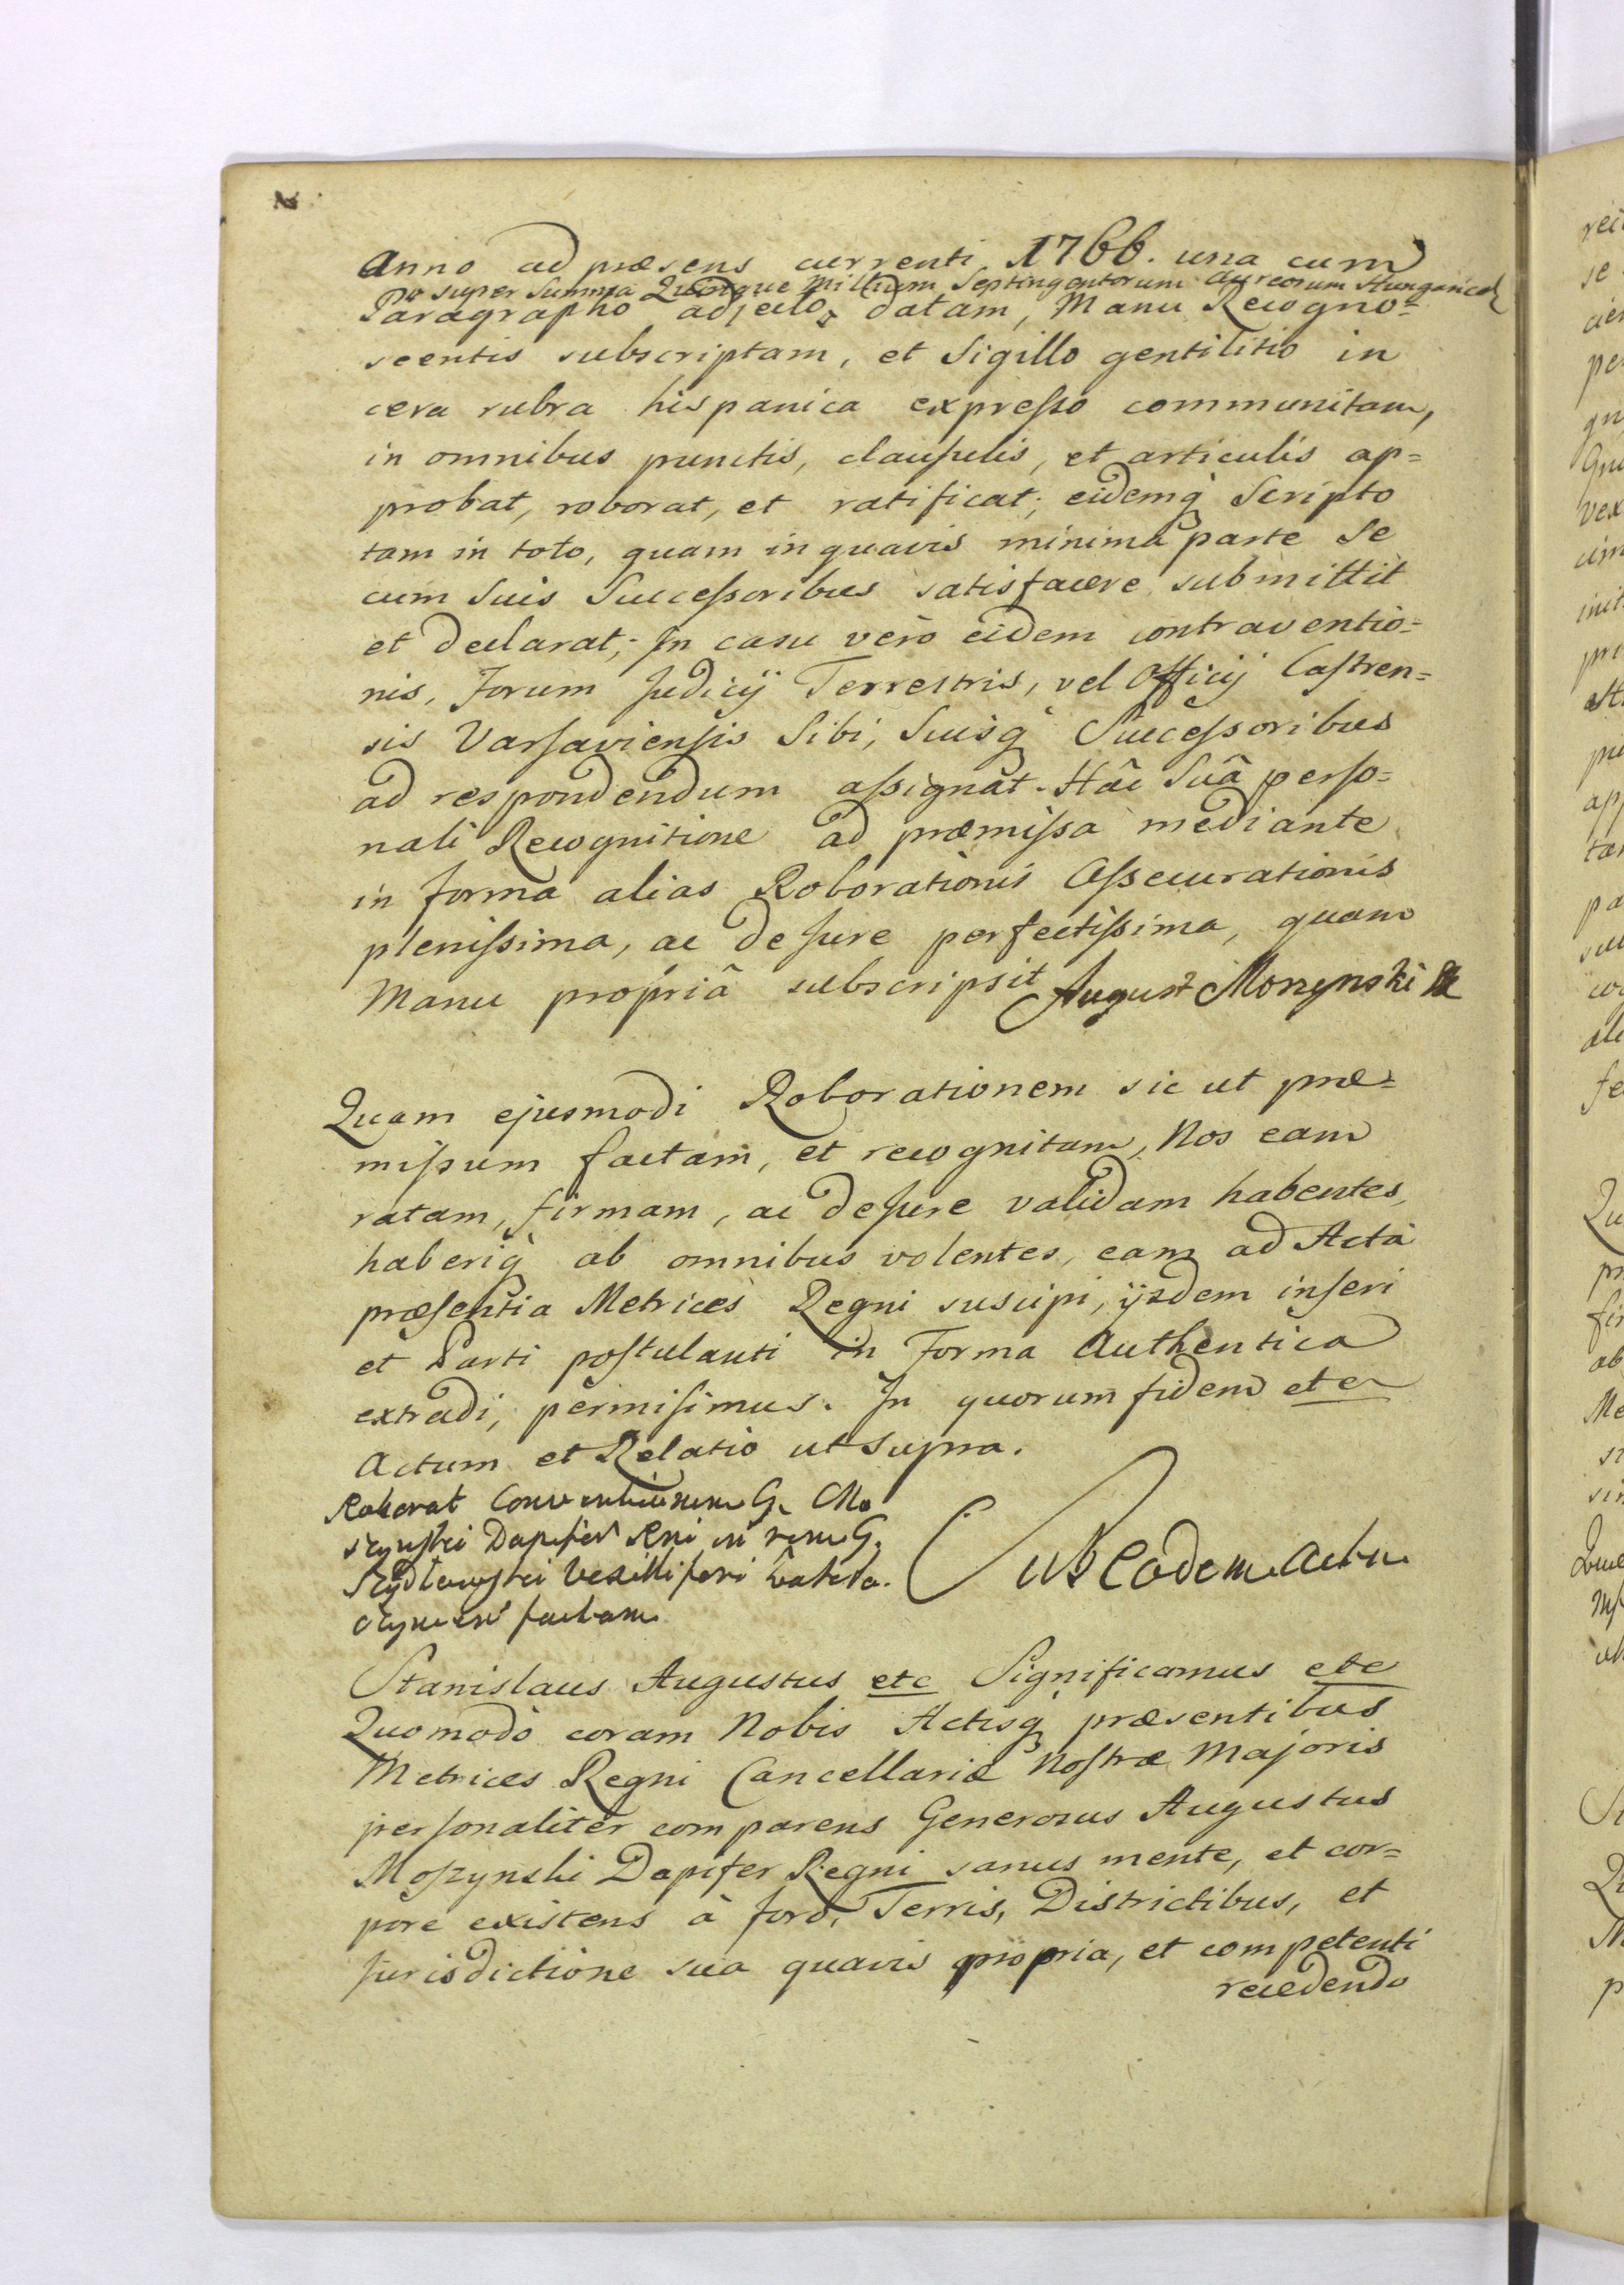 Anno ad præsens currenti 1766. una cum
super Summa Quinque Millium Septingentorum Aureorum Hungarical
Paragrapho adjecto, datam, Manu Recogno=
scentis subscriptam, et Sigillo gentilitio in
cera rubra hispanica expresso communitam,
in omnibus punctis, clausulis, et articulis ap=
probat, roborat, et ratificat; eidemq̀ Scripto
tam in toto, quam in quavis minima parte Se
cum Suis Successoribus satisfacere submittit
et declarat; In casu verò eidem contraventio=
nis, Forum Judicij Terrestris, vel Officij Castren=
sis Varsaviensis Sibi, Suisq̀ Successoribus
ad respondendum assignat. Hâc Suâ perso=
nali Recognitione ad præmissa mediante
in forma alias Roborationis Assecurationis
plenissima, ac de Jure perfectissima, quam
Manu propriâ subscripsit August Moszynski
Quam ejusmodi Roborationem sic ut præ=
missum factam, et recognitam, Nos eam
ratam, firmam, ac de Jure validam habentes,
haberiq̀ ab omnibus volentes, eam ad Acta
præsentia Metrices Regni suscipi, ijsdem inseri
et Parti postulanti in Forma Authentica
extradi, permisimus. In quorum fidem etc
Actum et Relatio ut supra.
Roborat Conventionem G. Mo
szynski Dapifer Rni in rem G.
Szydłowski Vexilliferi
factam
Sub Eodem Actu
Stanislaus Augustus etc Significamus etc
Quomodò coram Nobis Actisq̀ præsentibus
Metrices Regni Cancellariæ Nostræ Majoris
personalitèr comparens Generosus Augustus
Moszynski Dapifer Regni sanus mente, et cor=
pore existens à foro, Terris, Districtibus, et
Jurisdictione sua quavis propria, et competenti
recedendo